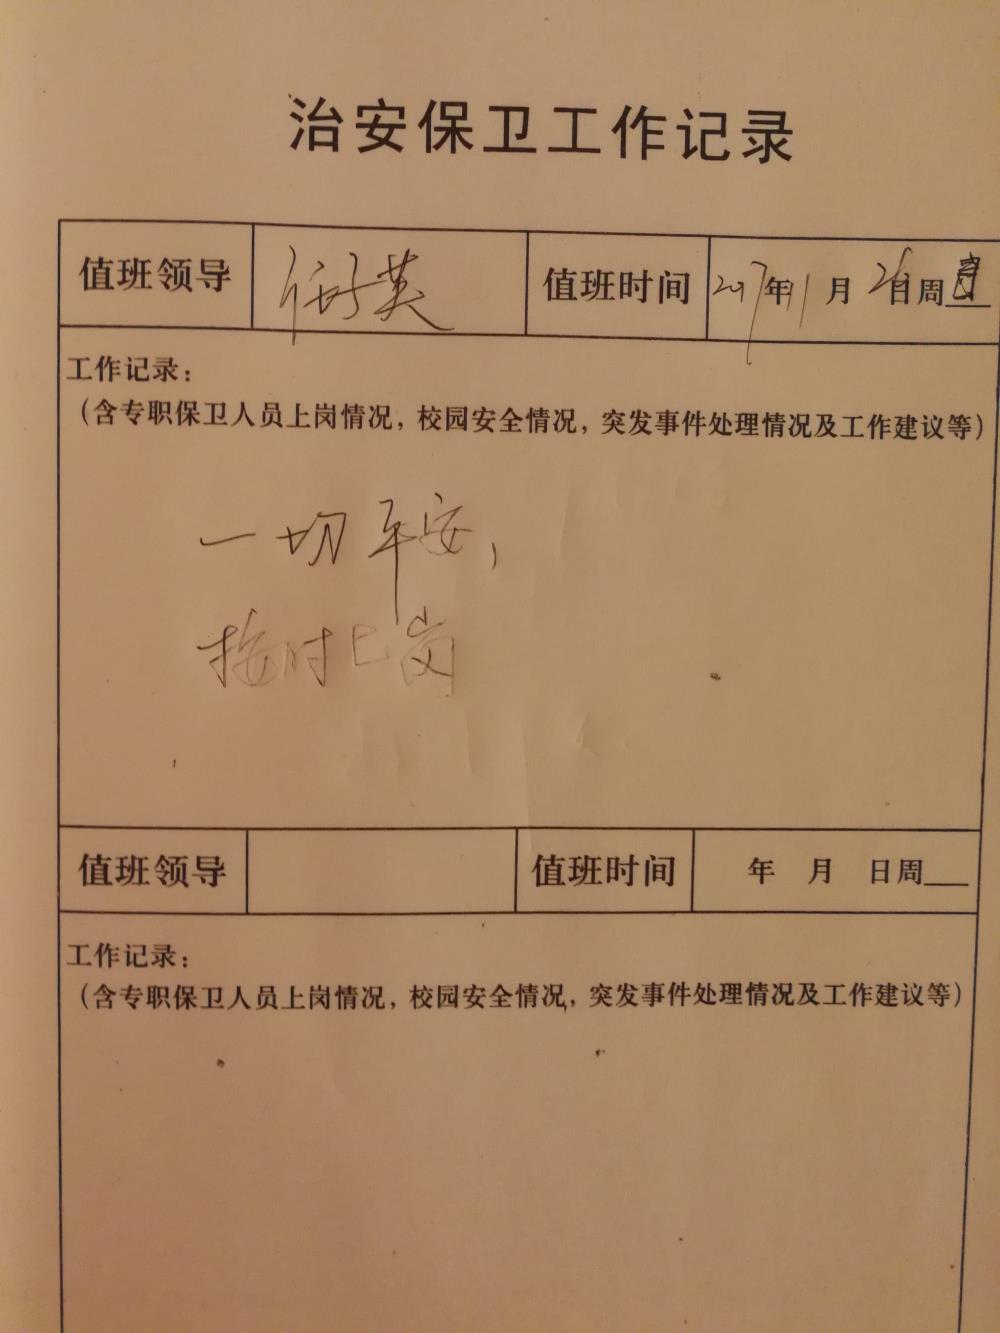 治安保卫工作记录
值班领导 值班时间 2017年11月26日周
工作记录：
（含专职保卫人员上岗情况，校园安全情况，突发事件处理情况及工作建议等）
一切平安，
按时上岗
值班领导 值班时间 年 月 日周
工作记录：
（含专职保卫人员上岗情况，校园安全情况，突发事件处理情况及工作建议等）